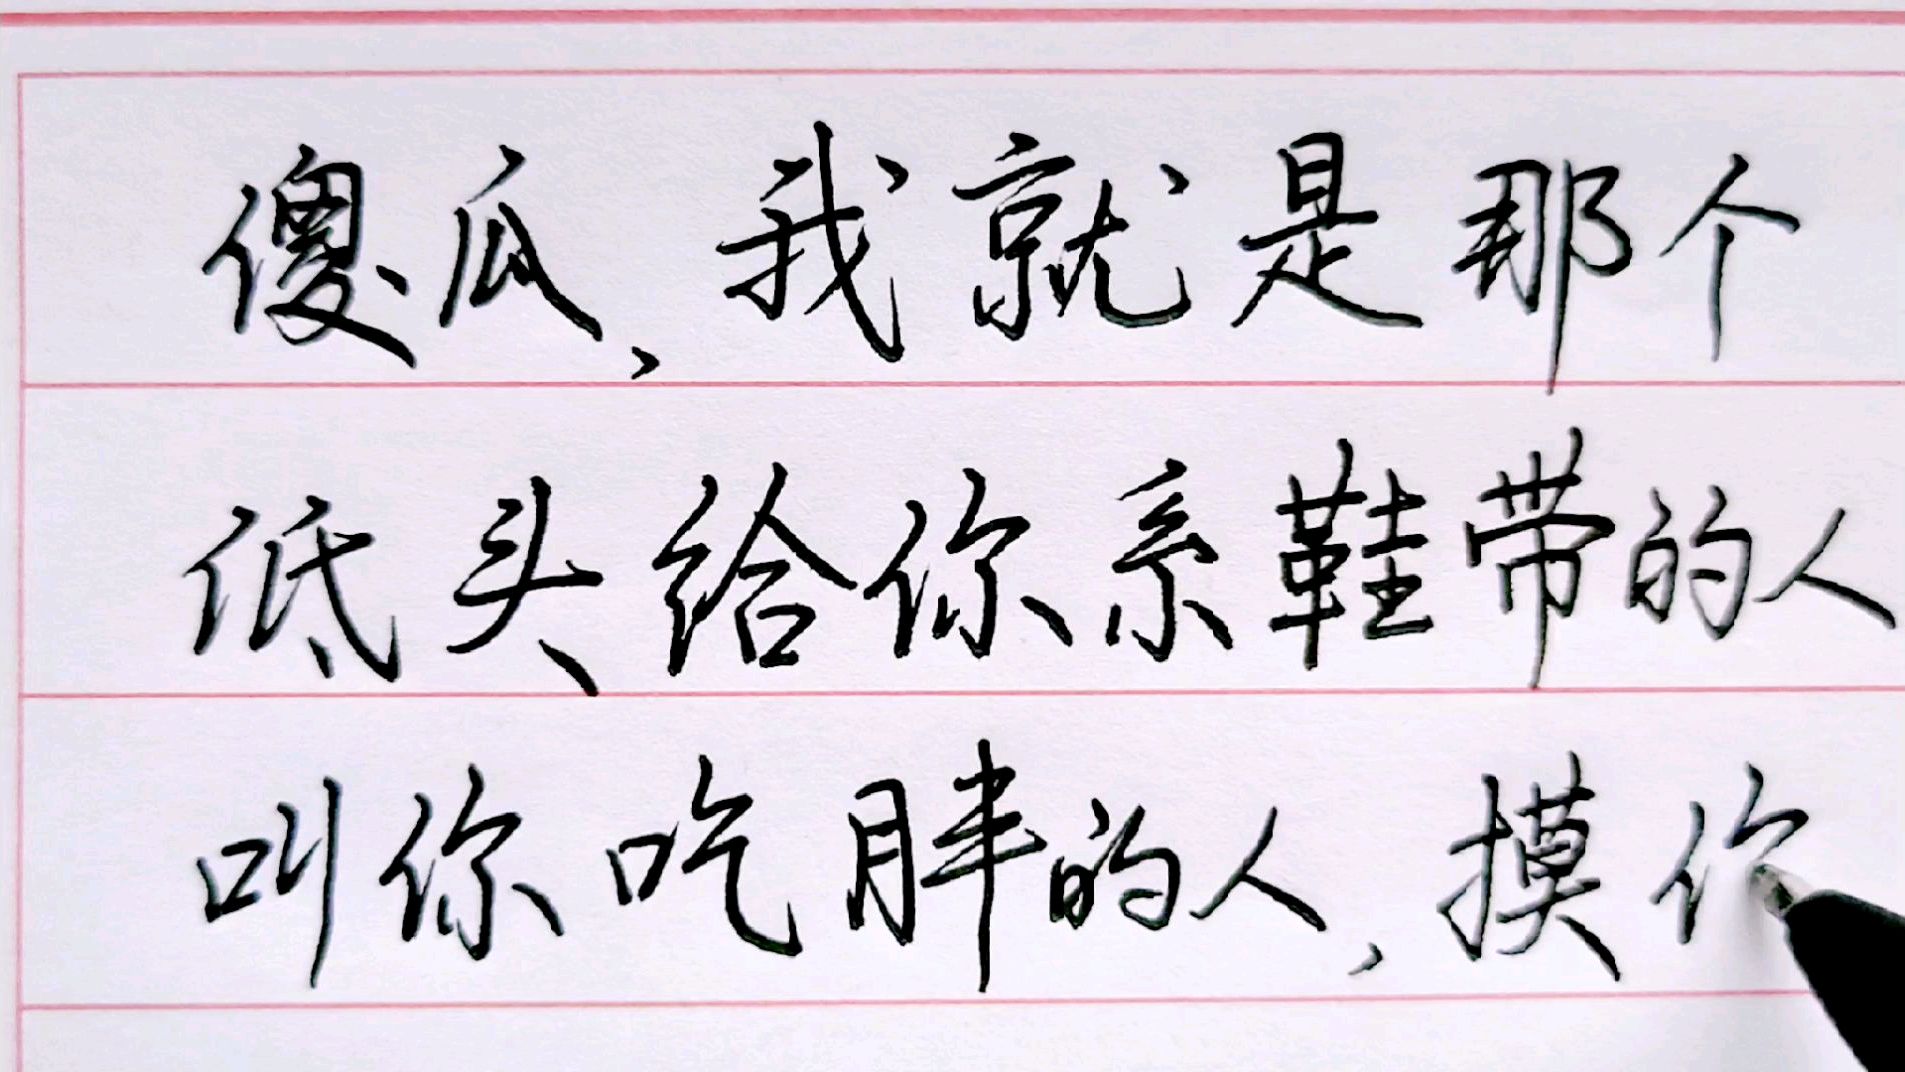 傻瓜，我就是那个
低头给你系鞋带的人
叫你吃胖的人，摸你